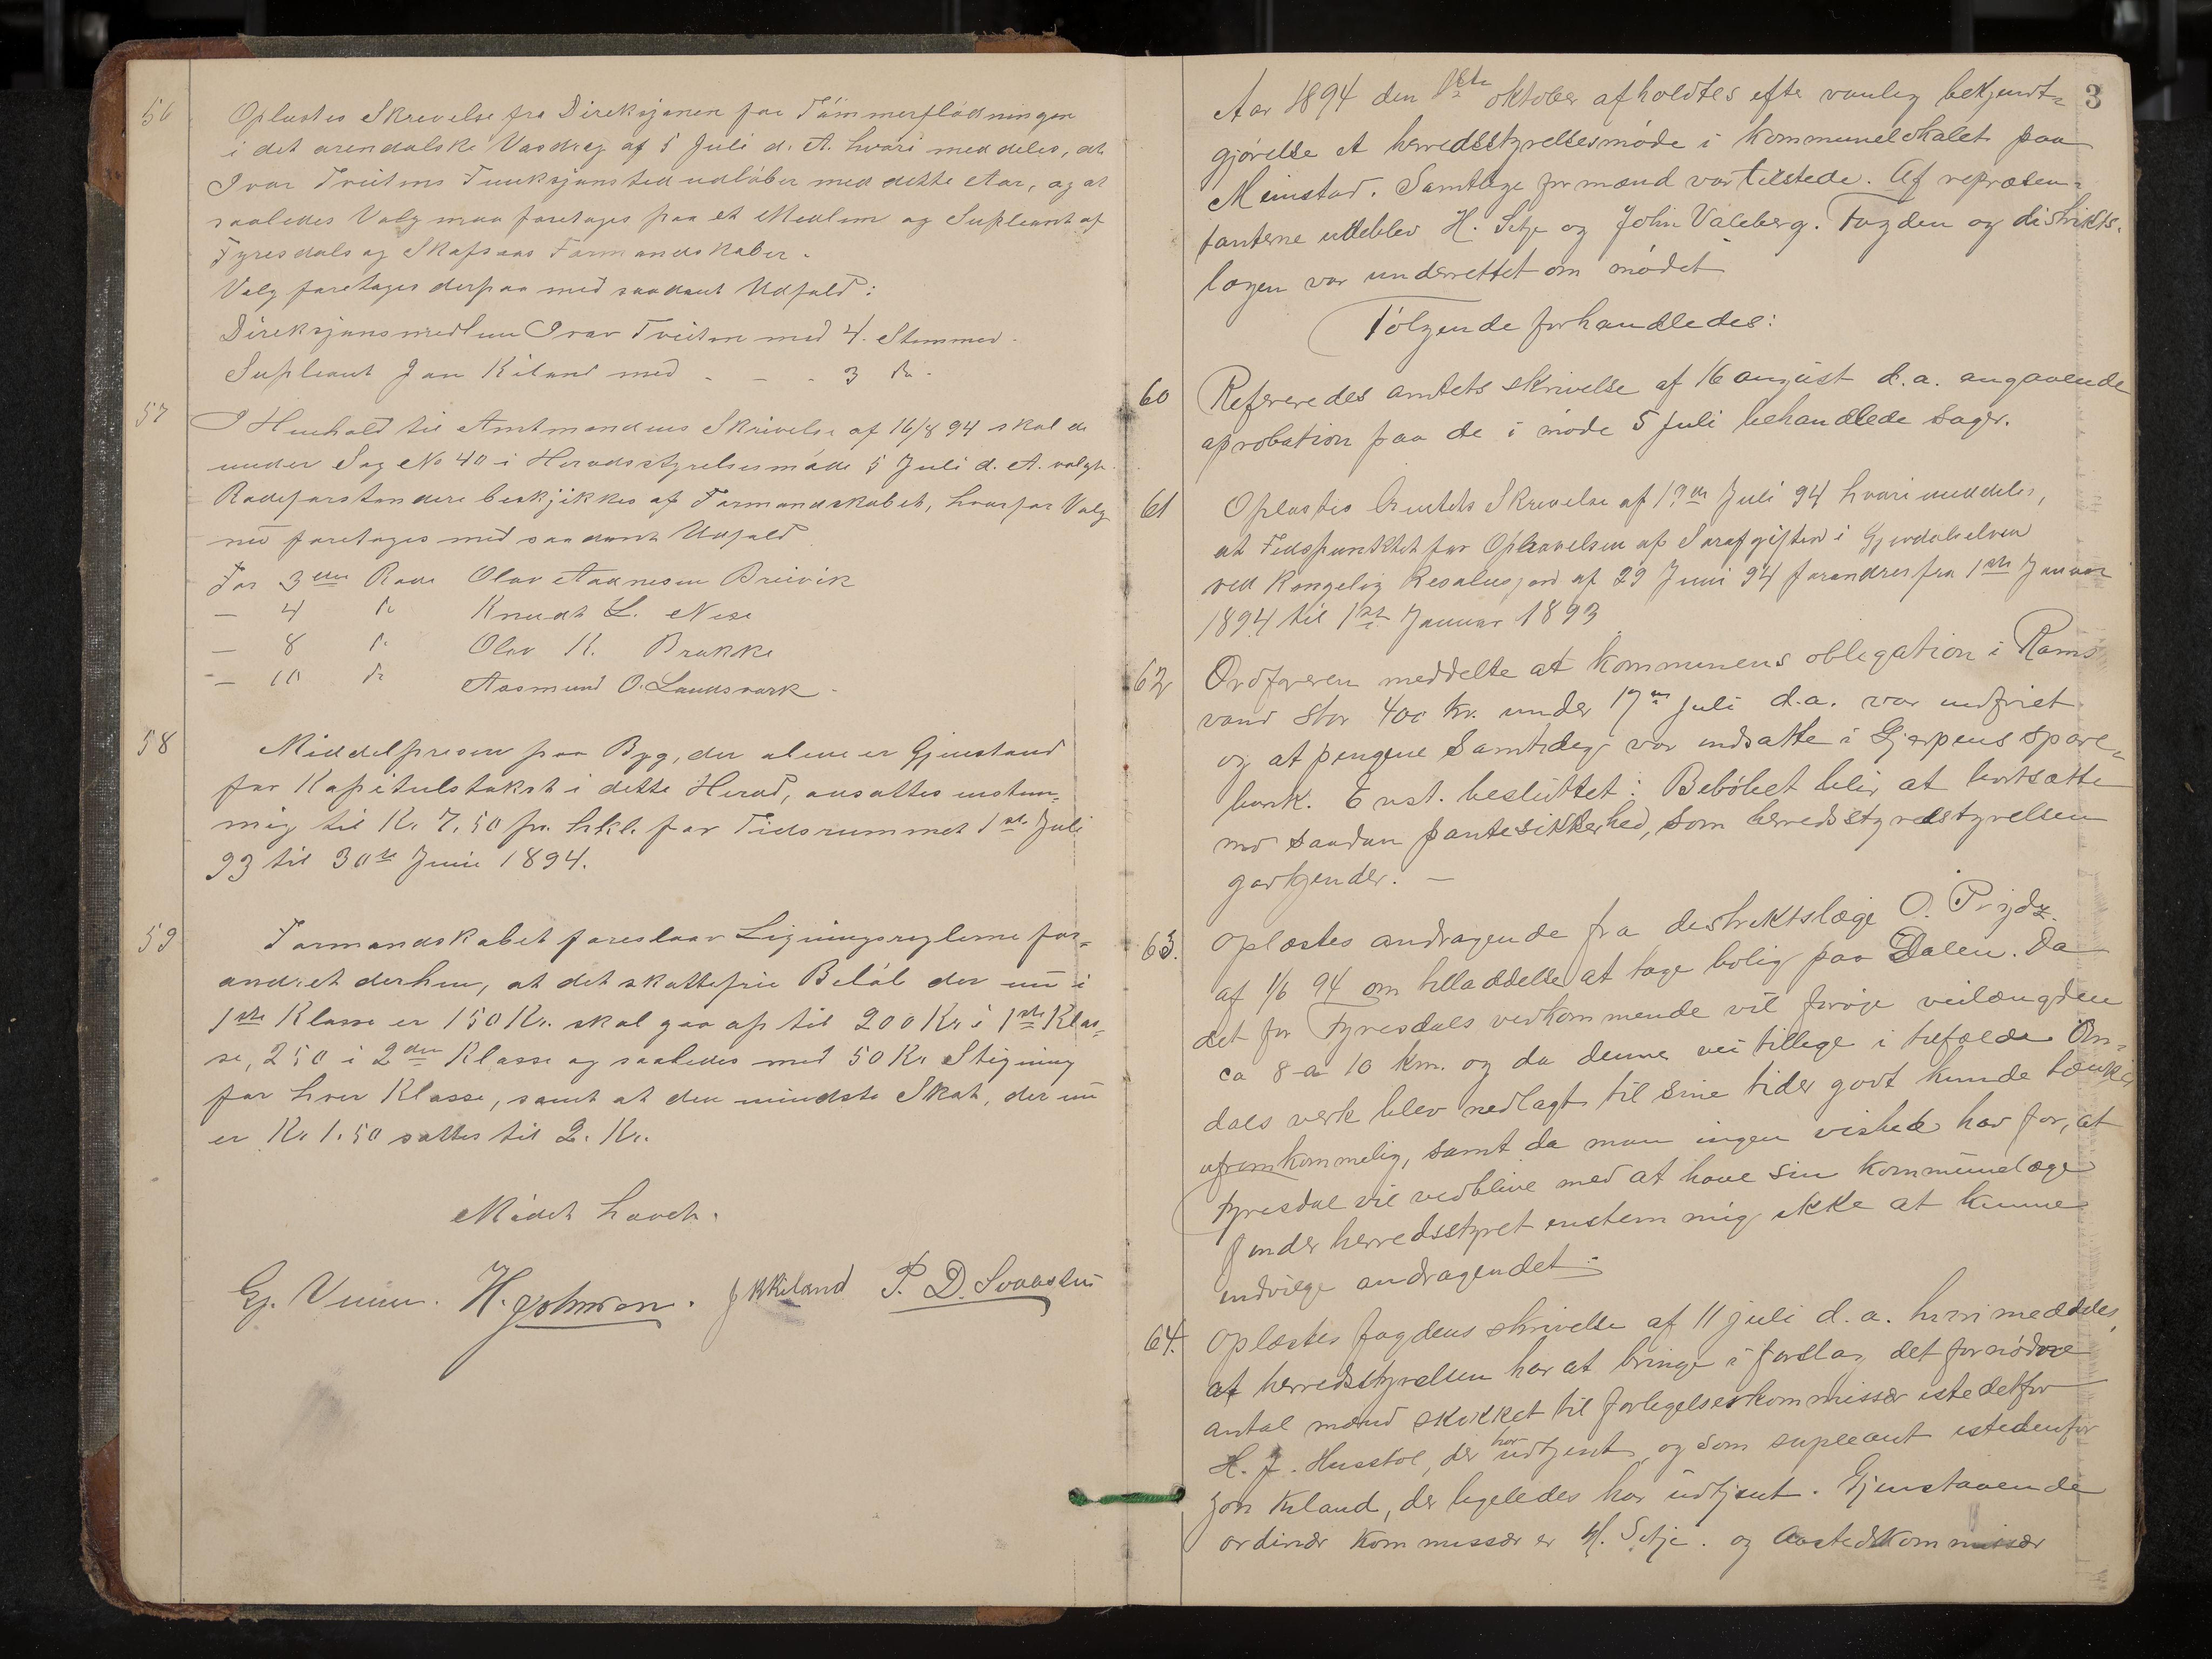 56
Oplæstes Skrivelse fra Direksjonen for Tømmerflødningen
i det arendalske Vasdrag af 5 Juli d. A. hvori meddeles, at
Ivar Tveitens Funksjonstid udløber med dette Aar, og at
saaledes Valg maa foretages paa et Medlem og Supleant af
Fyresdals og Skafsaas Formandskaber.
Valg foretages derpaa med saadant Udfald:
Direksjonsmedlem Ivar Tveiten med 4. Stemmer.
Supleant Jon Kiland med - - - 3 do.
57
I Henhold til Amtmandens Skrivelse af 16/8 94 skal de
under Sag No 40 i Heradsstyrelsesmøde 5 Juli d. A. valgte
Rodeforstandere beskjikkes af Formandskabet, hvorfor Valg
nu foretages med saadant Udfald
For 3die Rode Olav Aadnesen Breivik
— 4 do Knudt L. Nese
— 8 do Olav K. Brokke
— 10 do Aasmund O. Landsverk.
58
Middelprisen paa Byg, der alene er Gjenstand
for Kapitulstakst i dette Herad, ansattes enstem-
mig til Kr. 7.50 pr. hkl. for Tidsrummet 1ste Juli
93 til 30te Juni 1894.
59
Formandskabet foreslaar Ligningsreglerne for-
andret derhen, at det skattefrie Beløb der nu i
1ste Klasse er 150 Kr. skal gaa op til 200 Kr i 1ste Klas-
se, 250 i 2den Klasse og saaledes med 50 Kr Stigning
for hver Klasse, samt at den mindste Skat, der nu
er Kr 1.50 sættes til 2. Kr.
Mødet hævet.
Gj. Veum. H. Johnson. J K Kiland P. D. Svaastu
3
Aar 1894 den 1ste oktober afholdtes efter vanlig bekjendt-
gjørelse et herredsstyrelsesmøde i kommunelokalet paa
Meinstad. Samtlige formænd var tilstede. Af repræsen-
tanterne udeblev H. Setje og John Valeberg. Fogden og distrikts-
lægen var underrettet om mødet
Følgende forhandledes:
60
Refereredes amtets skrivelse af 16 august d.a. angaaende
aprobation paa de i møde 5 juli behandlede sager.
61
Oplæstes Amtets Skrivelse af Juli 94 hvori meddeles,
at Tidspunktet for Ophævelsen af i
ved Kongelig Resolusjon af 29 Juni 94 forandres fra 1ste Januar
1894 til 1ste Januar 1893
62
Ordføreren meddelte at kommunens obligation i Rams
vand stor 400 kr. under 17de juli d.a. var indfriet
og at pengene samtidig var indsatte i Gjerpens spare-
bank. Enst. besluttet: Beløbet blir at bortsætte
mod saadan pantesikkerhed, som herredsstyrelsen
godkjender. —
63.
Oplæstes andragende fra distriktslæge O. Prydz
af 1/6 94 om tilladelse at tage bolig paa Dalen. Da
det for Fyresdals vedkommende vil forøge veilængden
ca 8 a 10 km. og da denne vei tillige i tilfælde Om-
dals verk blev nedlagt til sine tider godt kunde tænkes
ufremkommelig, samt da man ingen vished har for, at
Fyresdal vil vedblive med at have sin kommunelæge
finder herredsstyret enstemmig ikke at kunne
indvilge andragendet.
64.
Oplæstes fogdens skrivelse af 11 juli d.a. hvori meddeles,
at herredsstyrelsen har at bringe i forslag det fornødne
antal mænd skikket til forligelseskommissær istedetfor
H. J. Husstøl, der har udtjent, og som supleant istedenfor
Jon Kiland, der ligeledes har udtjent. Gjenstaaende
ordinær kommissær er H. Setje. og Aastedskommissær